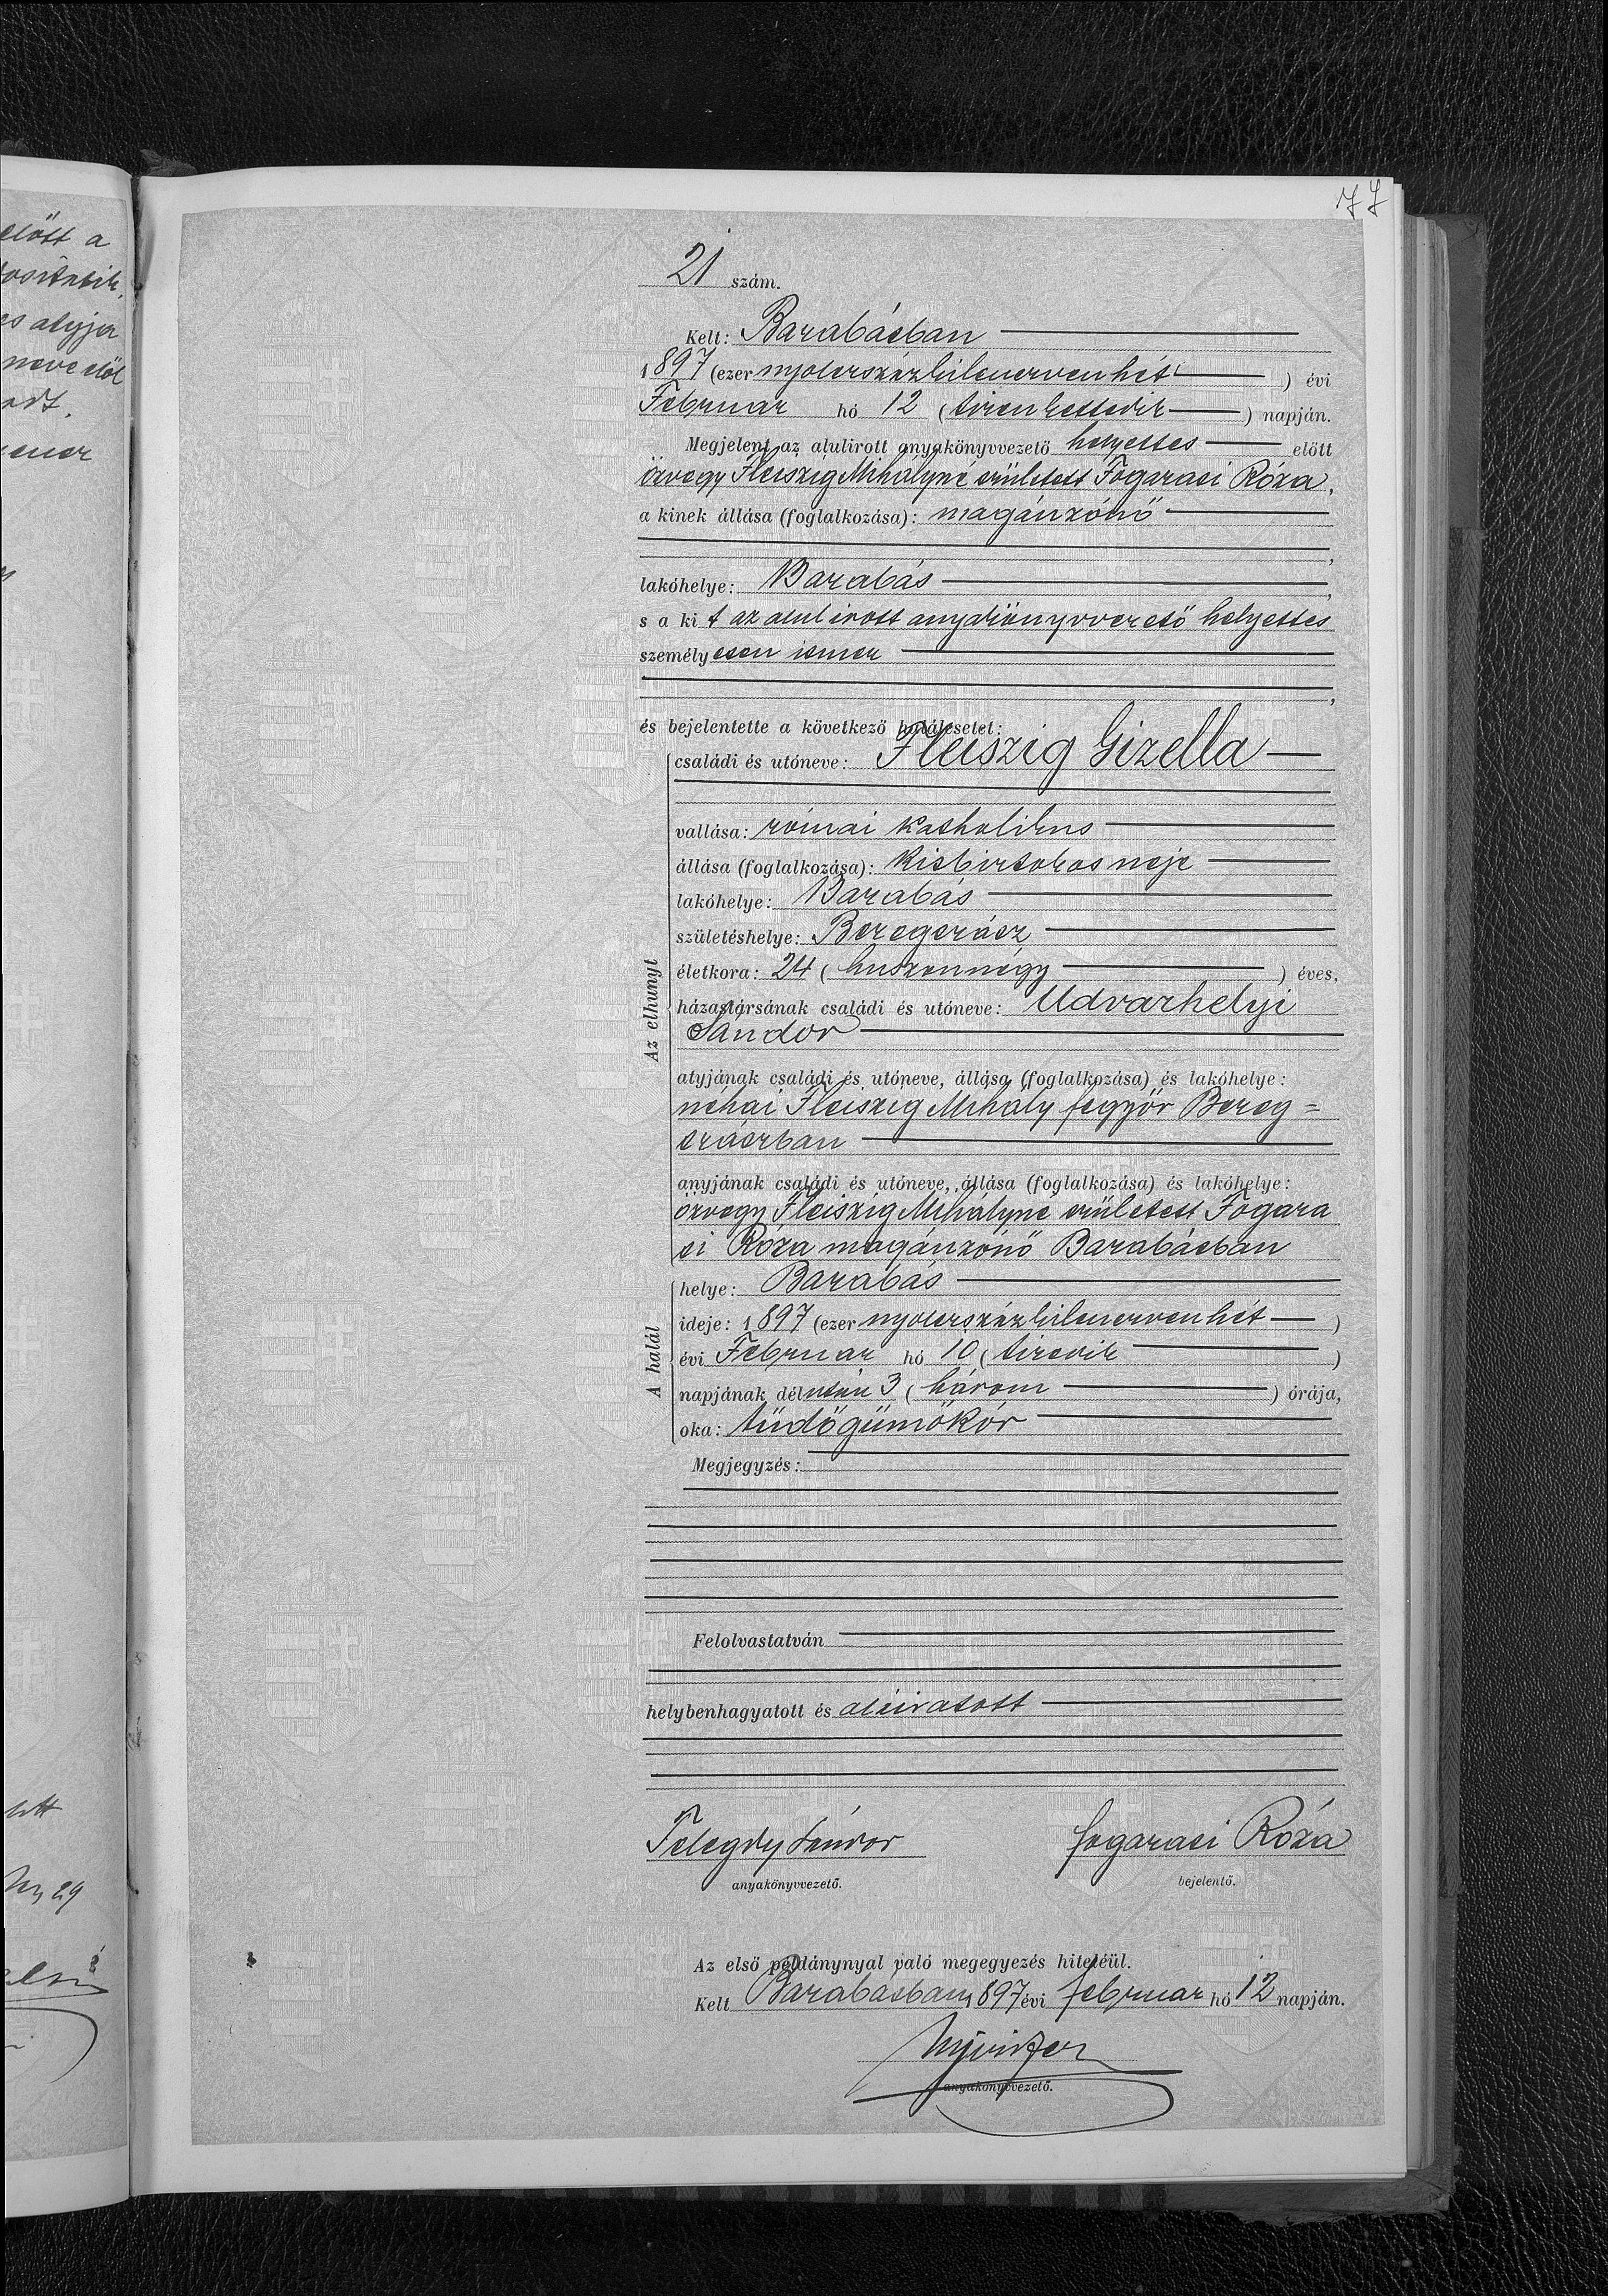 77
előtt a
es atyja
neve elől
21 szám.
Kelt: Barabásban
1897 (ezer nyolcszázkilencvenhét) évi
Február hó 12 (tizenkettedik) napján.
Megjelent az alulirott anyakönyvvezető helyettes előtt
özvegy Fleiszig Mihályné született Fogarasi Róza,
a kinek állása (foglalkozása): magánzónő
lakóhelye: Barabás,
s a kit az alulirott anyakönyvvezető helyettes
személyesen ismer
és bejelentette a következő halálesetet:
Az elhunyt
családi és utóneve: Fleiszig Gizella
vallása: római katholikus
állása (foglalkozása): kisbirtokos neje
lakóhelye: Barabás
születéshelye: Beregszász
életkora: 24 (huszonnégy) éves,
házastársának családi és utóneve: Udvarhelyi
Sándor
atyjának családi és utóneve, állása (foglalkozása) és lakóhelye:
néhai Fleiszig Mihály fegyőr Bereg=
szászban
anyjának családi és utóneve, állása (foglalkozása) és lakóhelye:
özvegy Fleiszig Mihályné született Fogara
si Róza magánzónő Barabásban
A halál
helye: Barabás
ideje: 1897 (ezer nyolcszázkilencvenhét)
évi Február hó 10 (tizedik)
napjának délután 3 (három) órája,
oka: tüdőgümőkór
Megjegyzés:
Felolvastatván
helybenhagyatott és aláiratott
Telegdy Sándor
anyakönyvvezető.
Fogarasi Róza
bejelentő.
Az első példánynyal való megegyezés hiteléül.
Kelt Barabásban 1897 évi február hó 12 napján.
anyakönyvvezető.